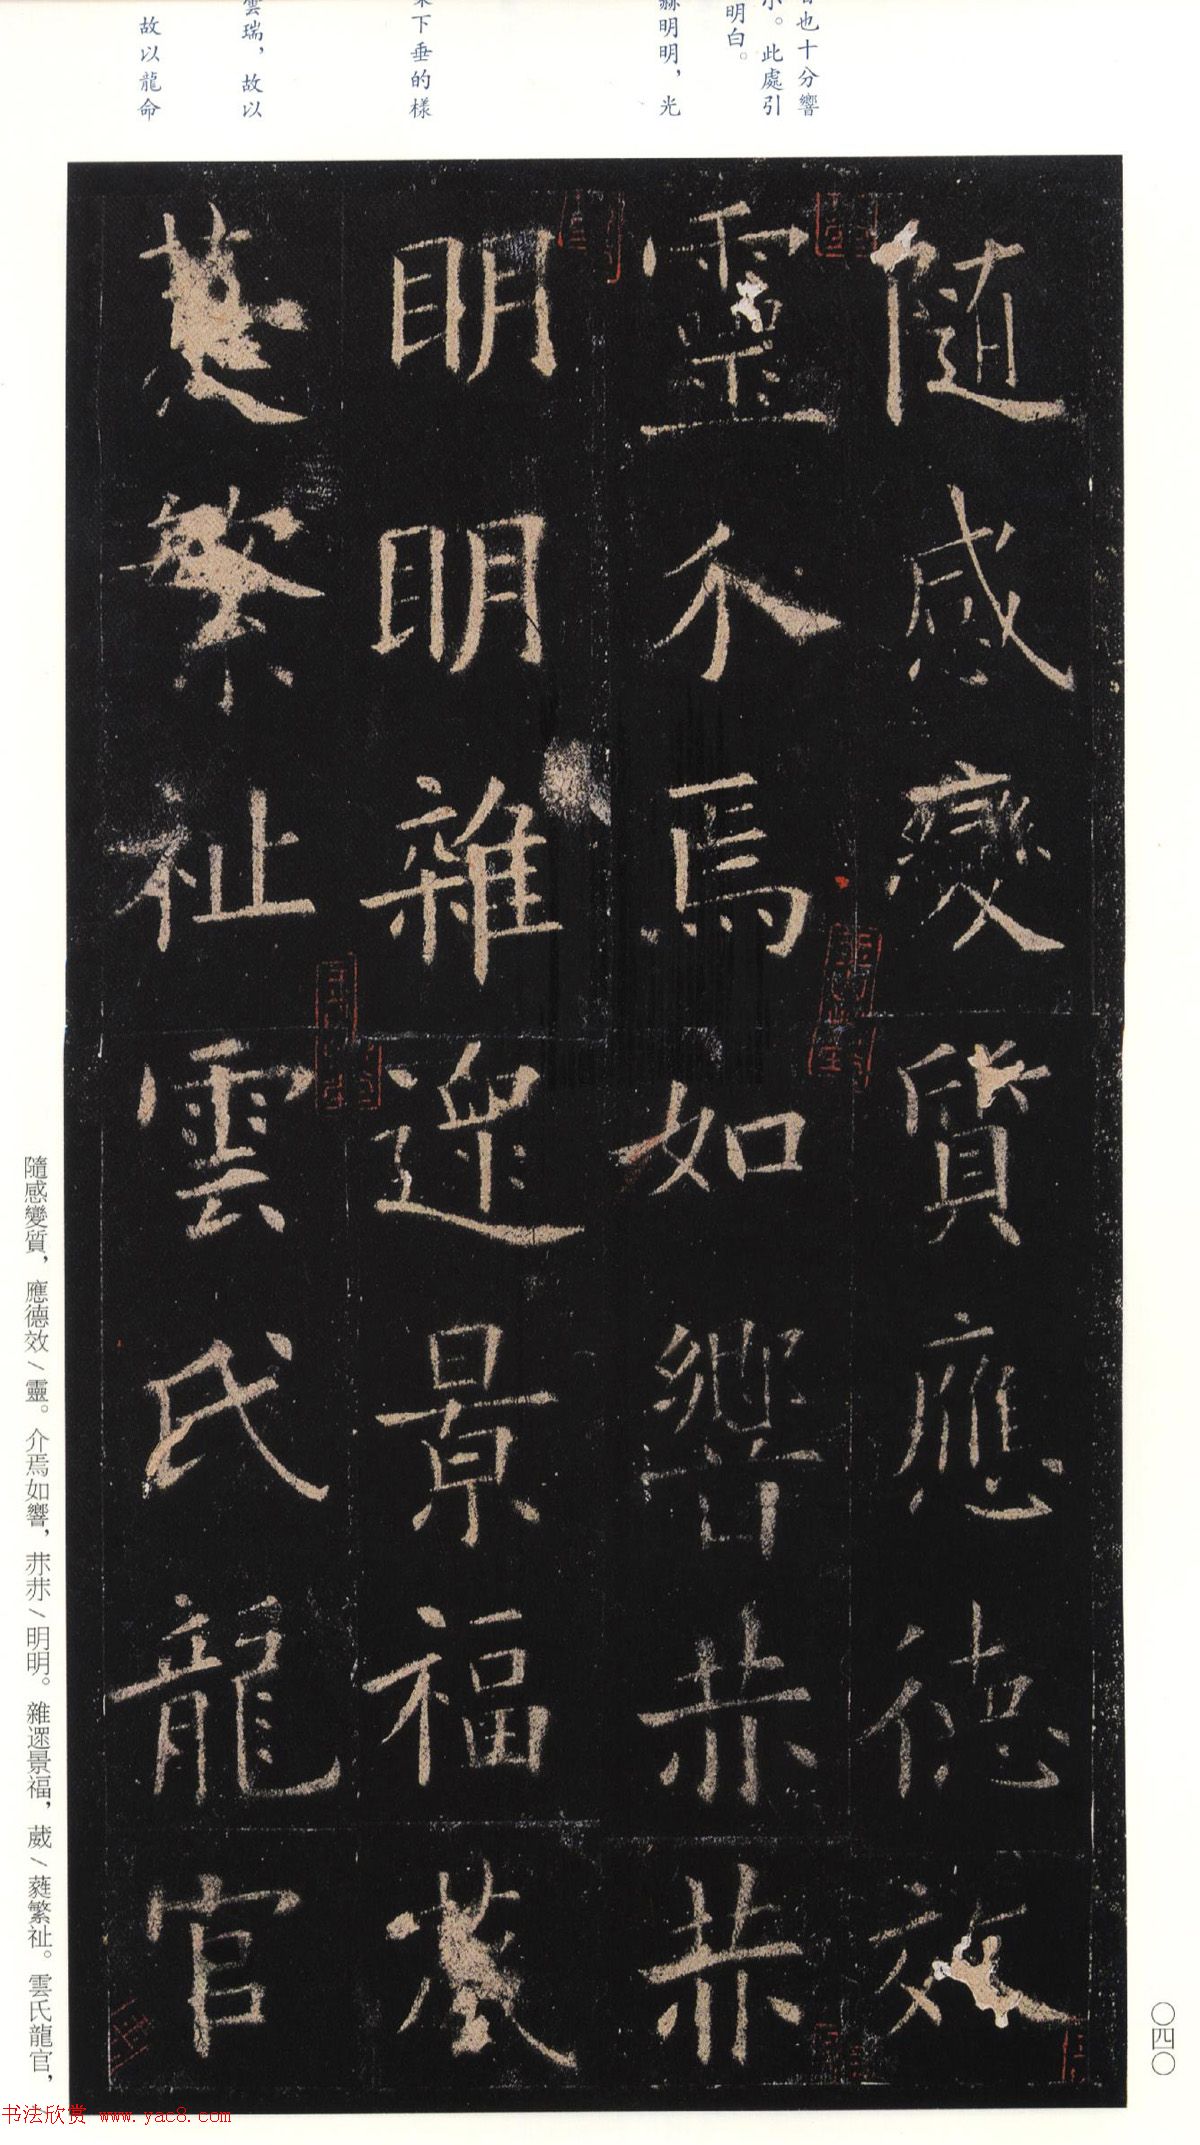 也十分響
此處引
明白。
赫明明，光
下垂的樣
雲瑞，故以
故以龍命
隨感變質應德效
靈介焉如響
明明雜遝景福葳
蕤繁祉雲氏龍官
隨感變質，應德效／靈。介焉如響，／明明。雜遝景福，葳／蕤繁祉。雲氏龍官，
〇四〇
书法欣赏 www.yac8.com